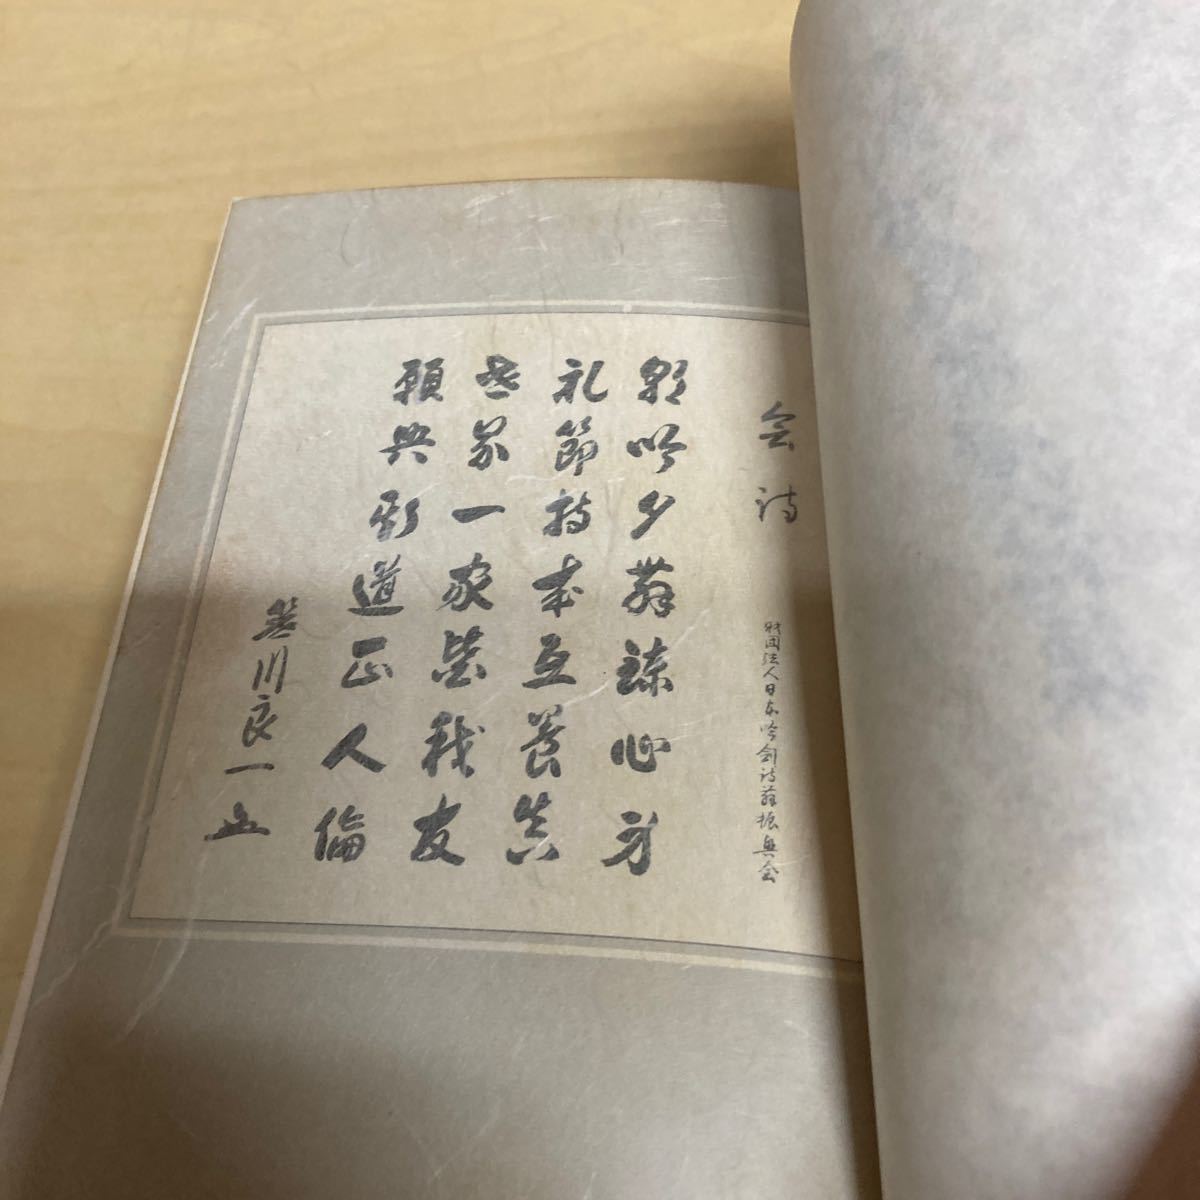 会詩
財団法人日本吟剣詩舞振興会
朝吟夕舞錬心身
礼節持本互養真
世界一家皆我友
願興斯道正人倫
笹川良一